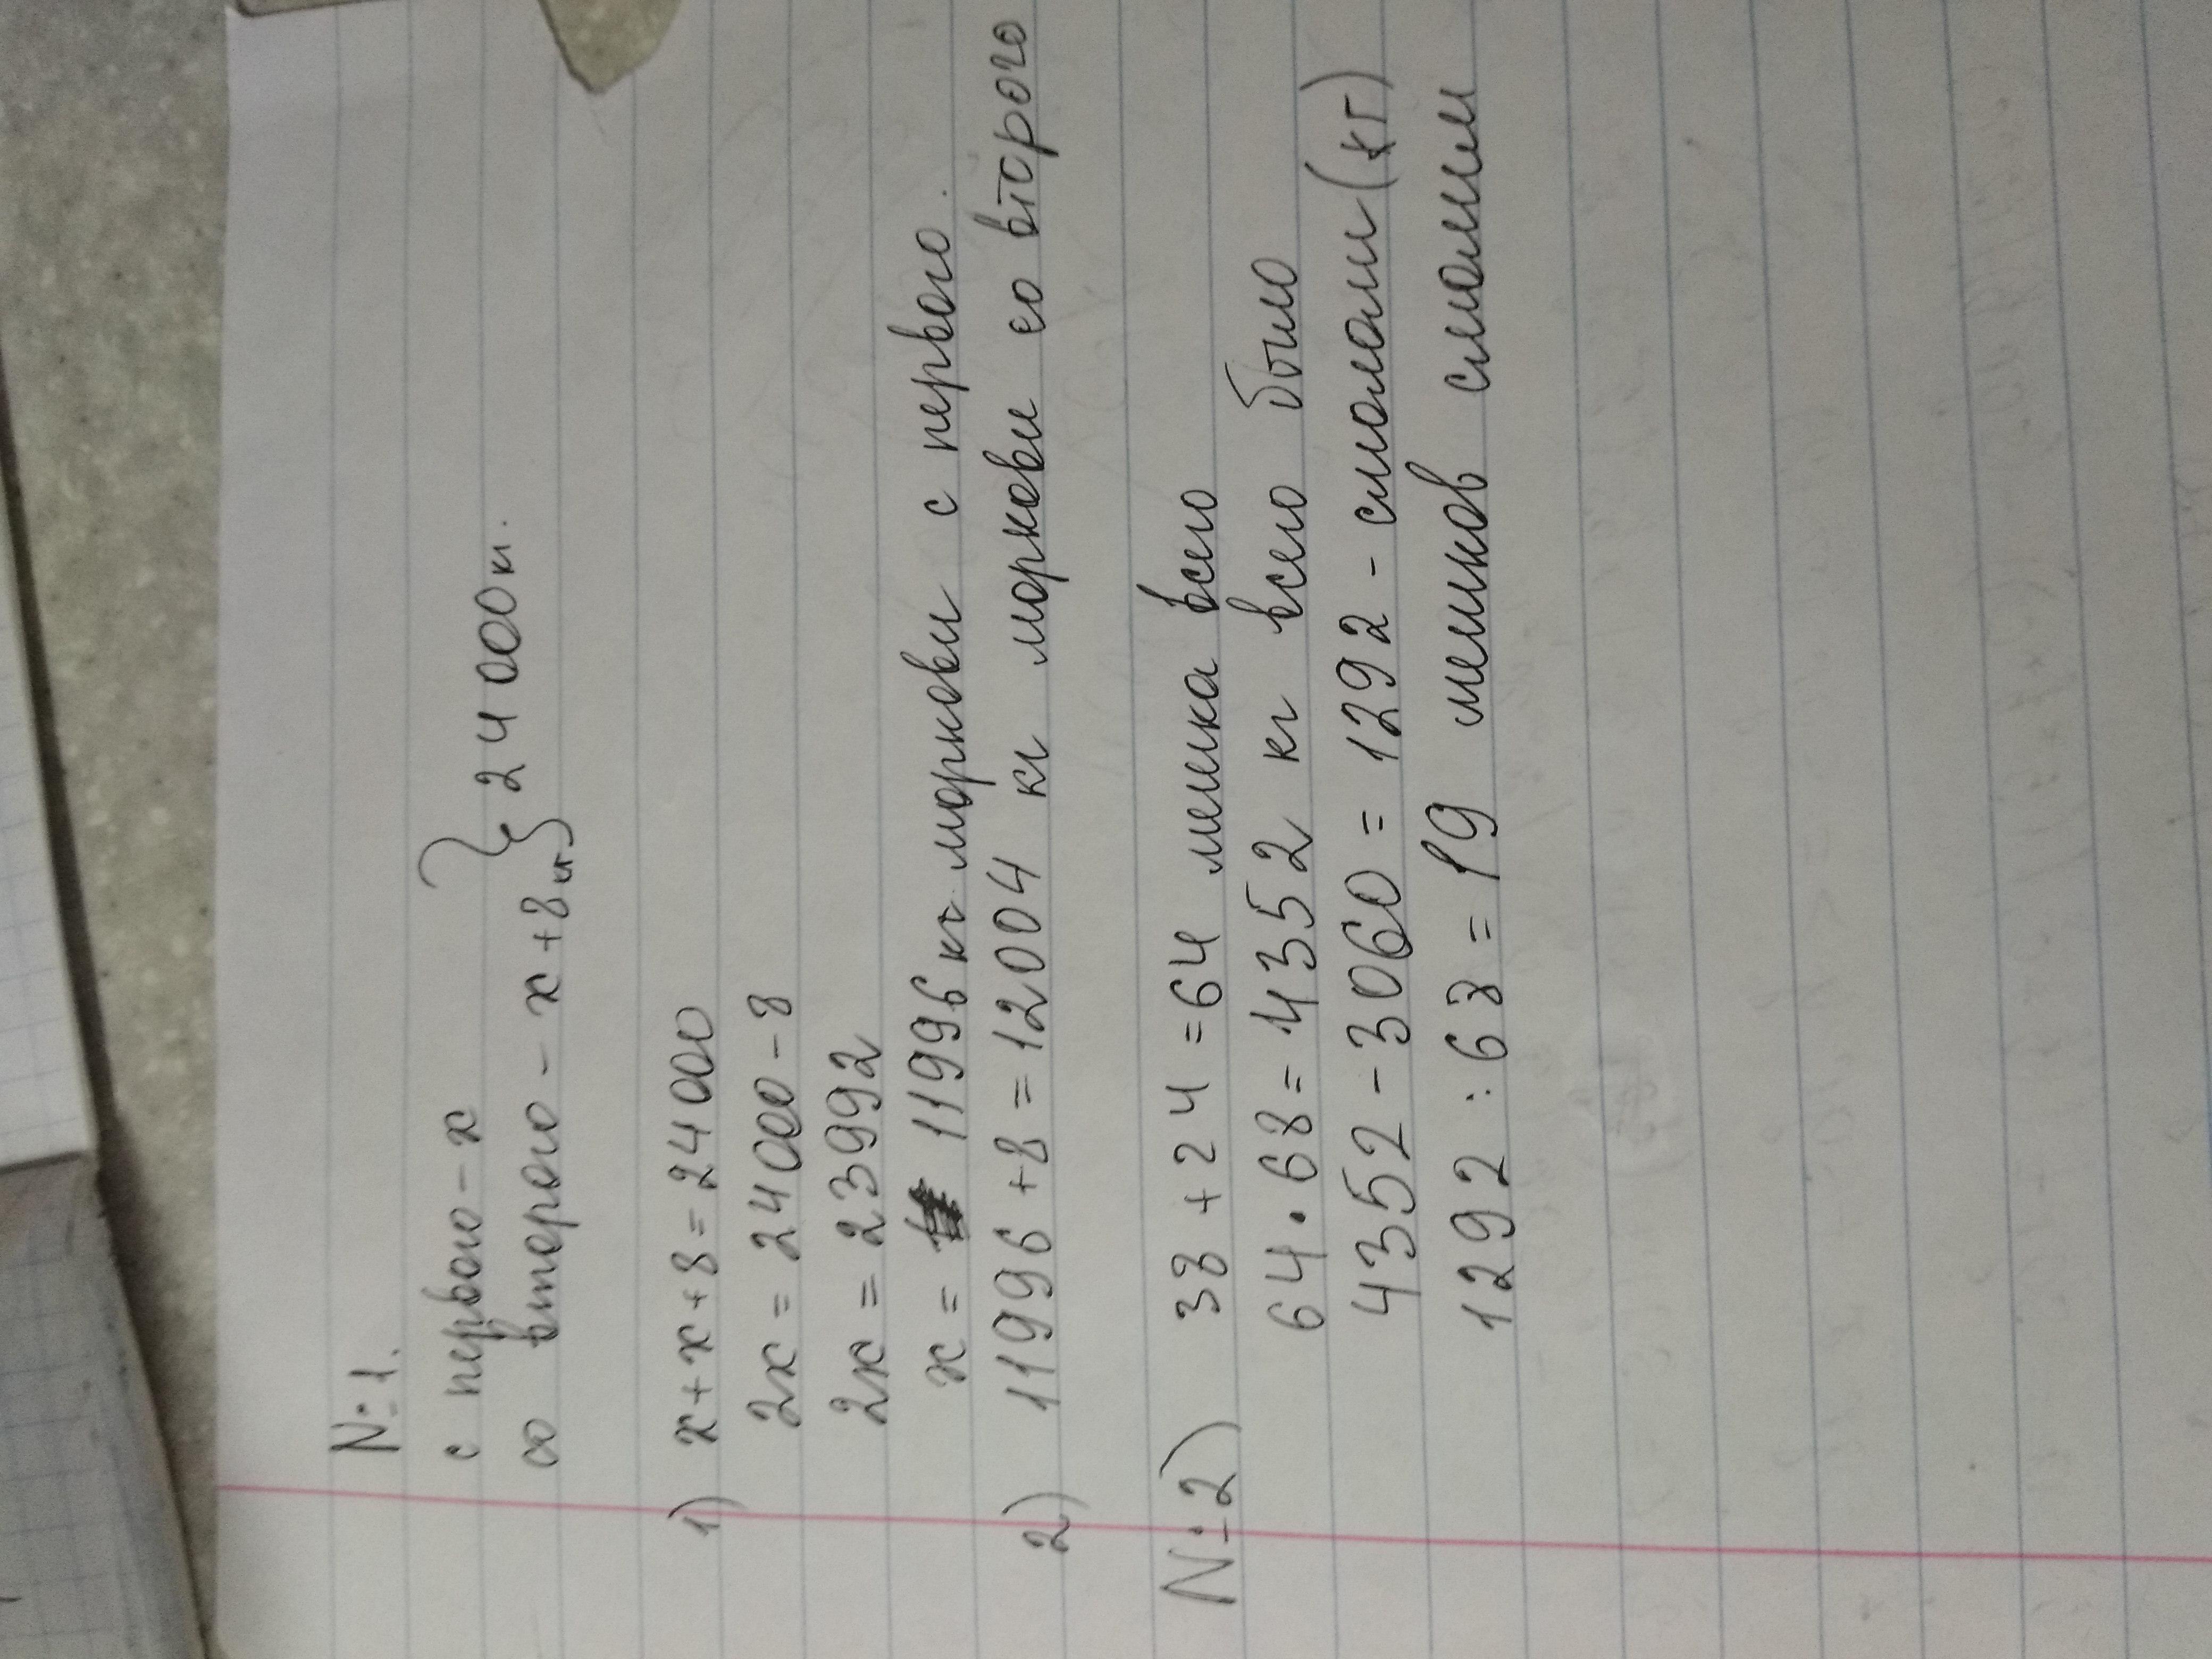 № 1.
с первого - х
со второго - х + 8 кг } 24 000 кг.
1) х + х + 8 = 24 000
2х = 24 000 - 8
2х = 23 992
х = 11 996 кг моркови с первого.
2) 11 996 + 8 = 12 004 кг моркови со второго
№ 2) 38 + 24 = 64 мешка всего
64 · 68 = 4352 кг всего было
4352 - 3060 = 1292 - смололи (кг)
1292 : 68 = 19 мешков смололи